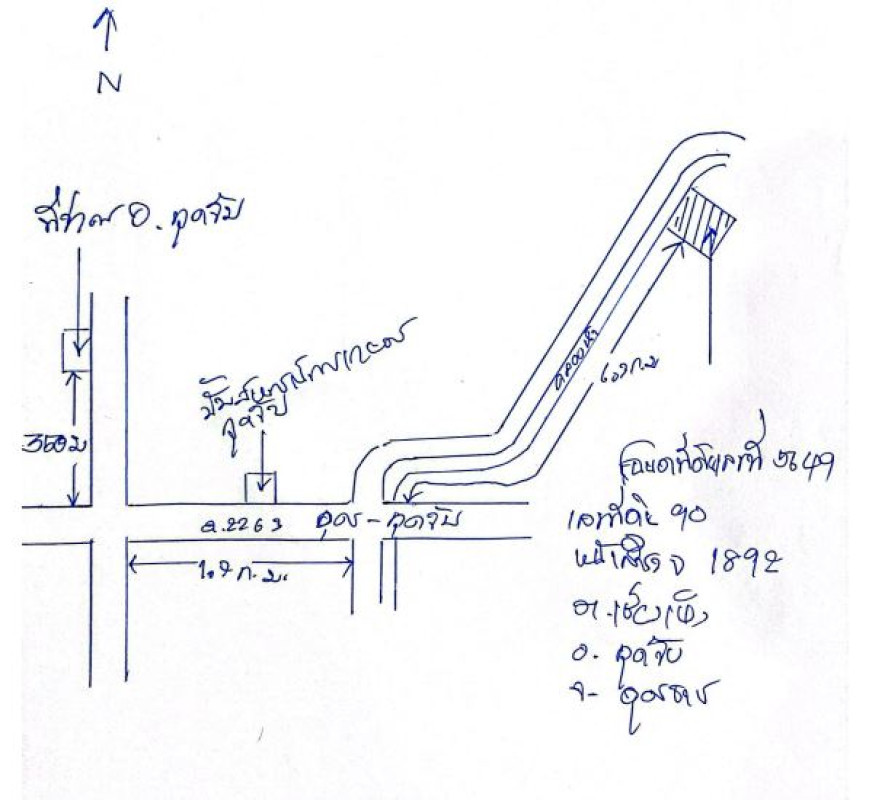 N
ที่ว่าการ อ. กุดจับ
350 ม
กุดจับ
ถ.2263 อุดร - กุดจับ
1.9 ก.ม.
คลองน้ำ
ก.ม
โฉนดที่ดินเลขที่
เลขที่ดิน 90
หน้าสำรวจ 1892
ต. เชียงเพ็ง
อ. กุดจับ
จ. อุดรธานี